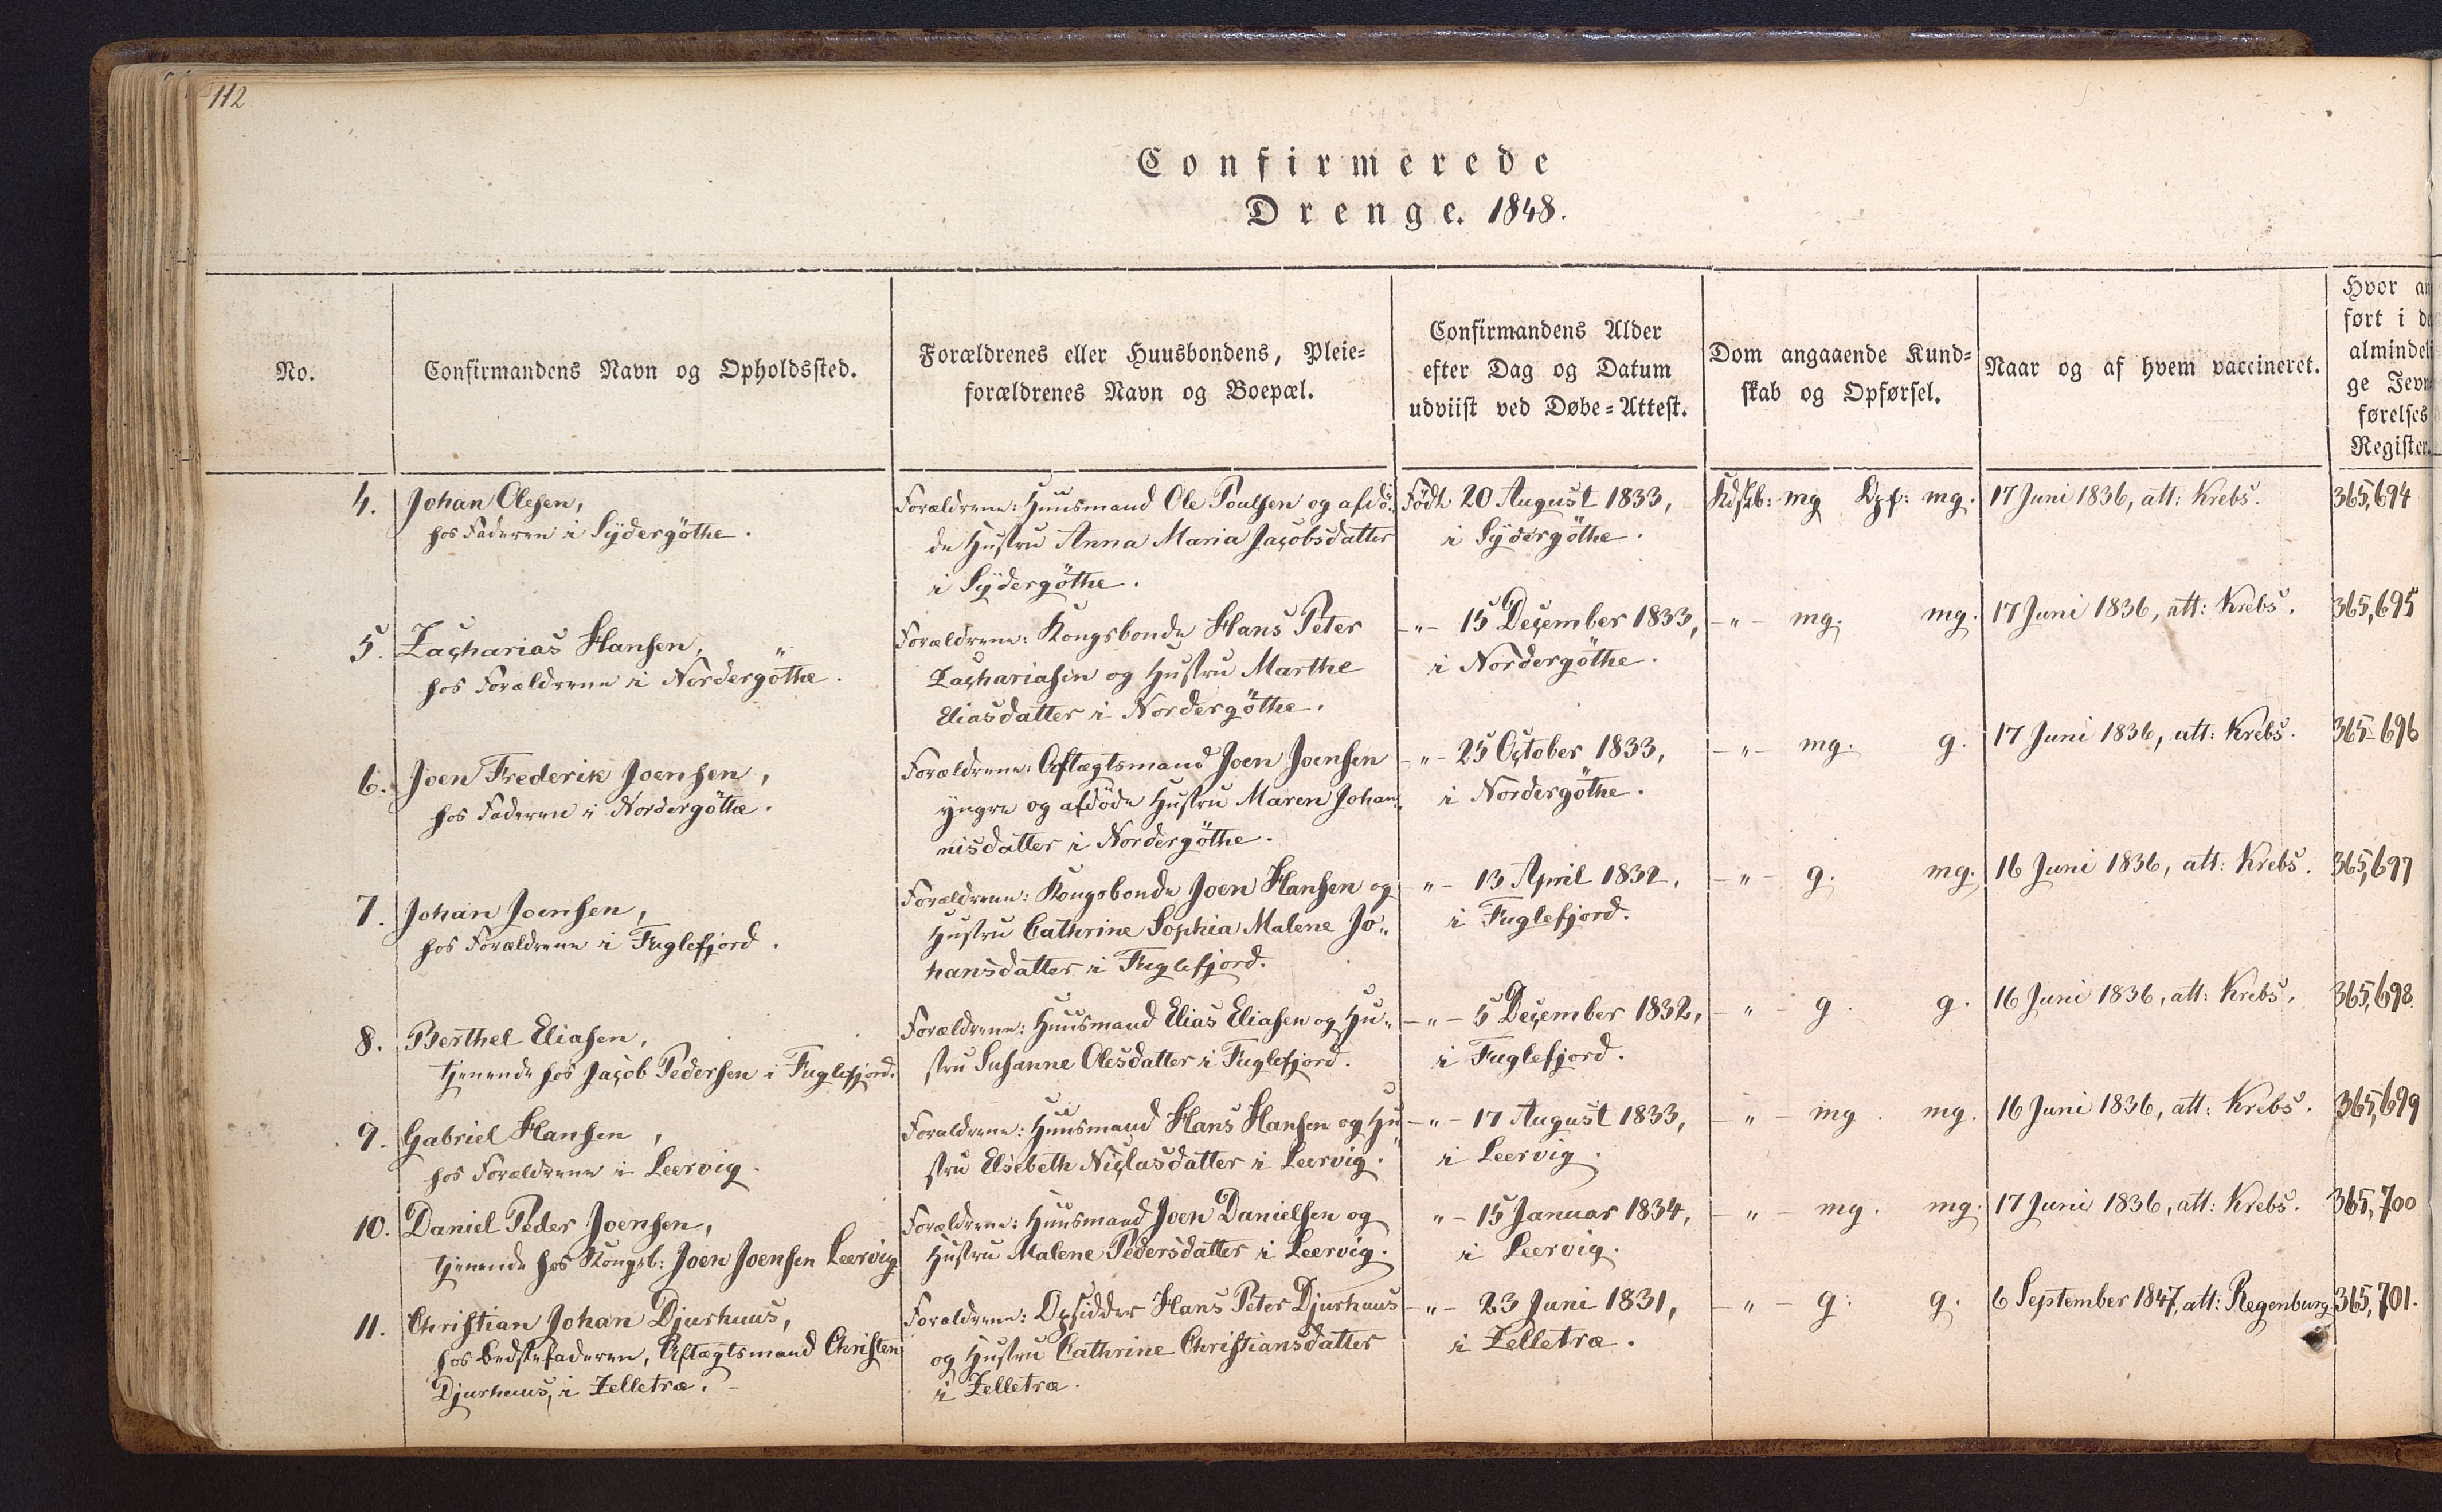 112
Confirmerede
Drenge. 1848.
No.
Confirmandens Navn og Opholdssted.
Forældrenes eller Huusbondens, Pleie=
forældrenes Navn og Boepæl.
Confirmandens Alder
efter Dag og Datum
udviist ved Døbe=Attest.
Dom angaaende Kund=
skab og Opførsel.
Naar og af hvem vaccineret.
Hvor an
ført i de
almindeli
ge Jevn
førelses
Register.
4.
Johan Olesen,
hos Faderen i Sydergöthe.
Forældrene: Huusmand Ole Poulsen og afdö=
de Hustru Anna Maria Jacobsdatter
i Sydergöthe.
Född 20 August 1833,
i Sydergöthe.
Kdskb: mg Opf: mg.
17 Juni 1836, att: Krebs.
365,694
5.
Zacharias Hansen,
hos Forældrene i Nordergöthe.
Forældrene: Kongsbonde Hans Peter
Zachariasen og Hustru Marthe
Eliasdatter i Nordergöthe.
-"- 15 December 1833,
i Nordergöthe.
-"- mg. mg.
17 Juni 1836, att: Krebs.
365,695
6.
Joen Frederik Joensen,
hos Faderen i Nordergöthe.
Forældrene: Aftægtsmand Joen Joensen
yngre og afdöde Hustru Maren Johan=
nisdatter i Nordergöthe.
-"- 25 October 1833,
i Nordergöthe.
-"- mg. g.
17 Juni 1836, att: Krebs.
365-696
7.
Johan Joensen,
hos Forældrene i Fuglefjord.
Forældrene: Kongsbonde Joen Hansen og
Hustru Cathrine Sophia Malene Jo=
hansdatter i Fuglefjord.
"- 13 April 1832,
i Fuglefjord.
-"- g. mg.
16 Juni 1836, att: Krebs.
365,697
8.
Berthel Eliasen,
tjenende hos Jacob Pedersen i Fuglefjord.
Forældrene: Huusmand Elias Eliasen og Hu=
stru Susanne Olesdatter i Fuglefjord.
-"- 5 December 1832,
i Fuglefjord.
-"- g. g.
16 Juni 1836, att: Krebs.
365,698
9.
Gabriel Hansen,
hos Forældrene i Leervig.
Forældrene: Huusmand Hans Hansen og Hu=
stru Elsebeth Niclasdatter i Leervig.
-"- 17 August 1833,
i Leervig.
-"- mg. mg.
16 Juni 1836, att: Krebs.
365,699
10.
Daniel Peder Joensen,
tjenende hos Kongsb: Joen Joensen Leervig
Forældrene: Huusmand Joen Danielsen og
Hustru Malene Pedersdatter i Leervig.
"- 15 Januar 1834,
i Leervig.
-"- mg. mg.
17 Juni 1836, att: Krebs.
365,700
11.
Christian Johan Djurhuus,
hos Bedstefaderen, Aftægtsmand Christen
Djurhuus, i Zelletræ.
Forældrene: Opsidder Hans Peter Djurhuus
og Hustru Cathrine Christiansdatter
i Zelletræ.
-"- 23 Juni 1831,
i Zelletræ.
-"- g. g.
6 September 1847, att: Regenburg
365,701.